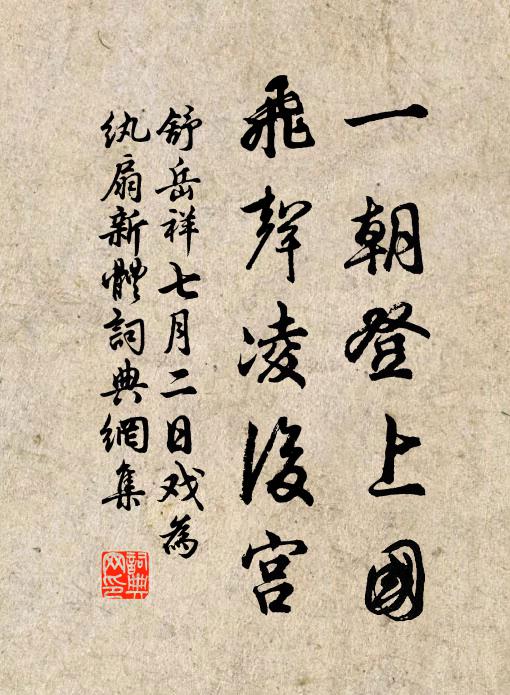 一朝登上國
飛聲凌後宮
舒岳祥七月二日戏為
紈扇新體詞典網集
詞典网印